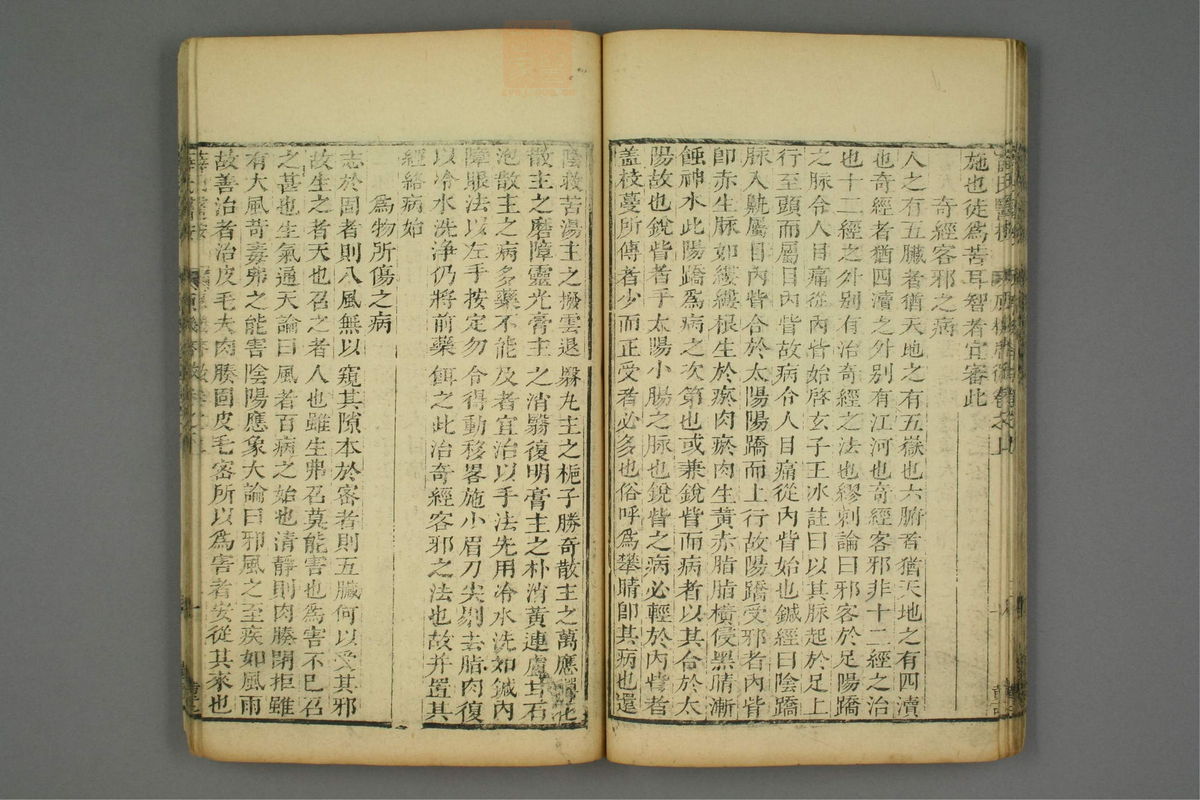 施也徒爲苦耳智者宜審此
奇經客邪之病
人之有五臟者猶天地之有五嶽也六腑者猶天地之有四瀆
也奇經者猶四瀆之外别有江河也奇經客邪非十二經之治
也十二經之外别有治奇經之法也繆刺論曰邪客於足陽蹻
之脉令人目痛從內眥始啓玄子王冰註曰以其脉起於足上
行至頭而屬目內眥故病令人目痛從內眥始也鍼經曰陰蹻
脉入鼽屬目內眥合於太陽陽蹻而上行故陽蹻受邪者內眥
即赤生脉如縷縷根生於瘀肉瘀肉生黃赤脂脂橫侵黑睛漸
蝕神水此陽蹻爲病之次第也或兼銳眥而病者以其合於太
陽故也銳眥者手太陽小腸之脉也銳眥之病必輕於內眥者
蓋枝蔓所傳者少而正受者必多也俗呼爲攀睛即其病也還
陰救苦湯主之撥雲退翳丸主之梔子勝奇散主之萬應蟬花
散主之磨障靈光膏主之消翳復明膏主之朴消黃連爐甘石
泡散主之病多藥不能及者宜治以手法先用冷水洗如鍼內
障眼法以左手按定勿令得動移畧施小眉刀尖剔去脂肉復
以冷水洗淨仍將前藥餌之此治奇經客邪之法也故并置其
經絡病始
爲物所傷之病
志於固者則八風無以窺其隙本於密者則五臟何以受其邪
故生之者天也召之者人也雖生弗召莫能害也爲害不已召
之甚也生氣通天論曰風者百病之始也清靜則肉腠閉拒雖
有大風苛毒弗之能害陰陽應象大論曰邪風之至疾如風雨
故善治者治皮毛夫肉腠固皮毛密所以爲害者安從其來也